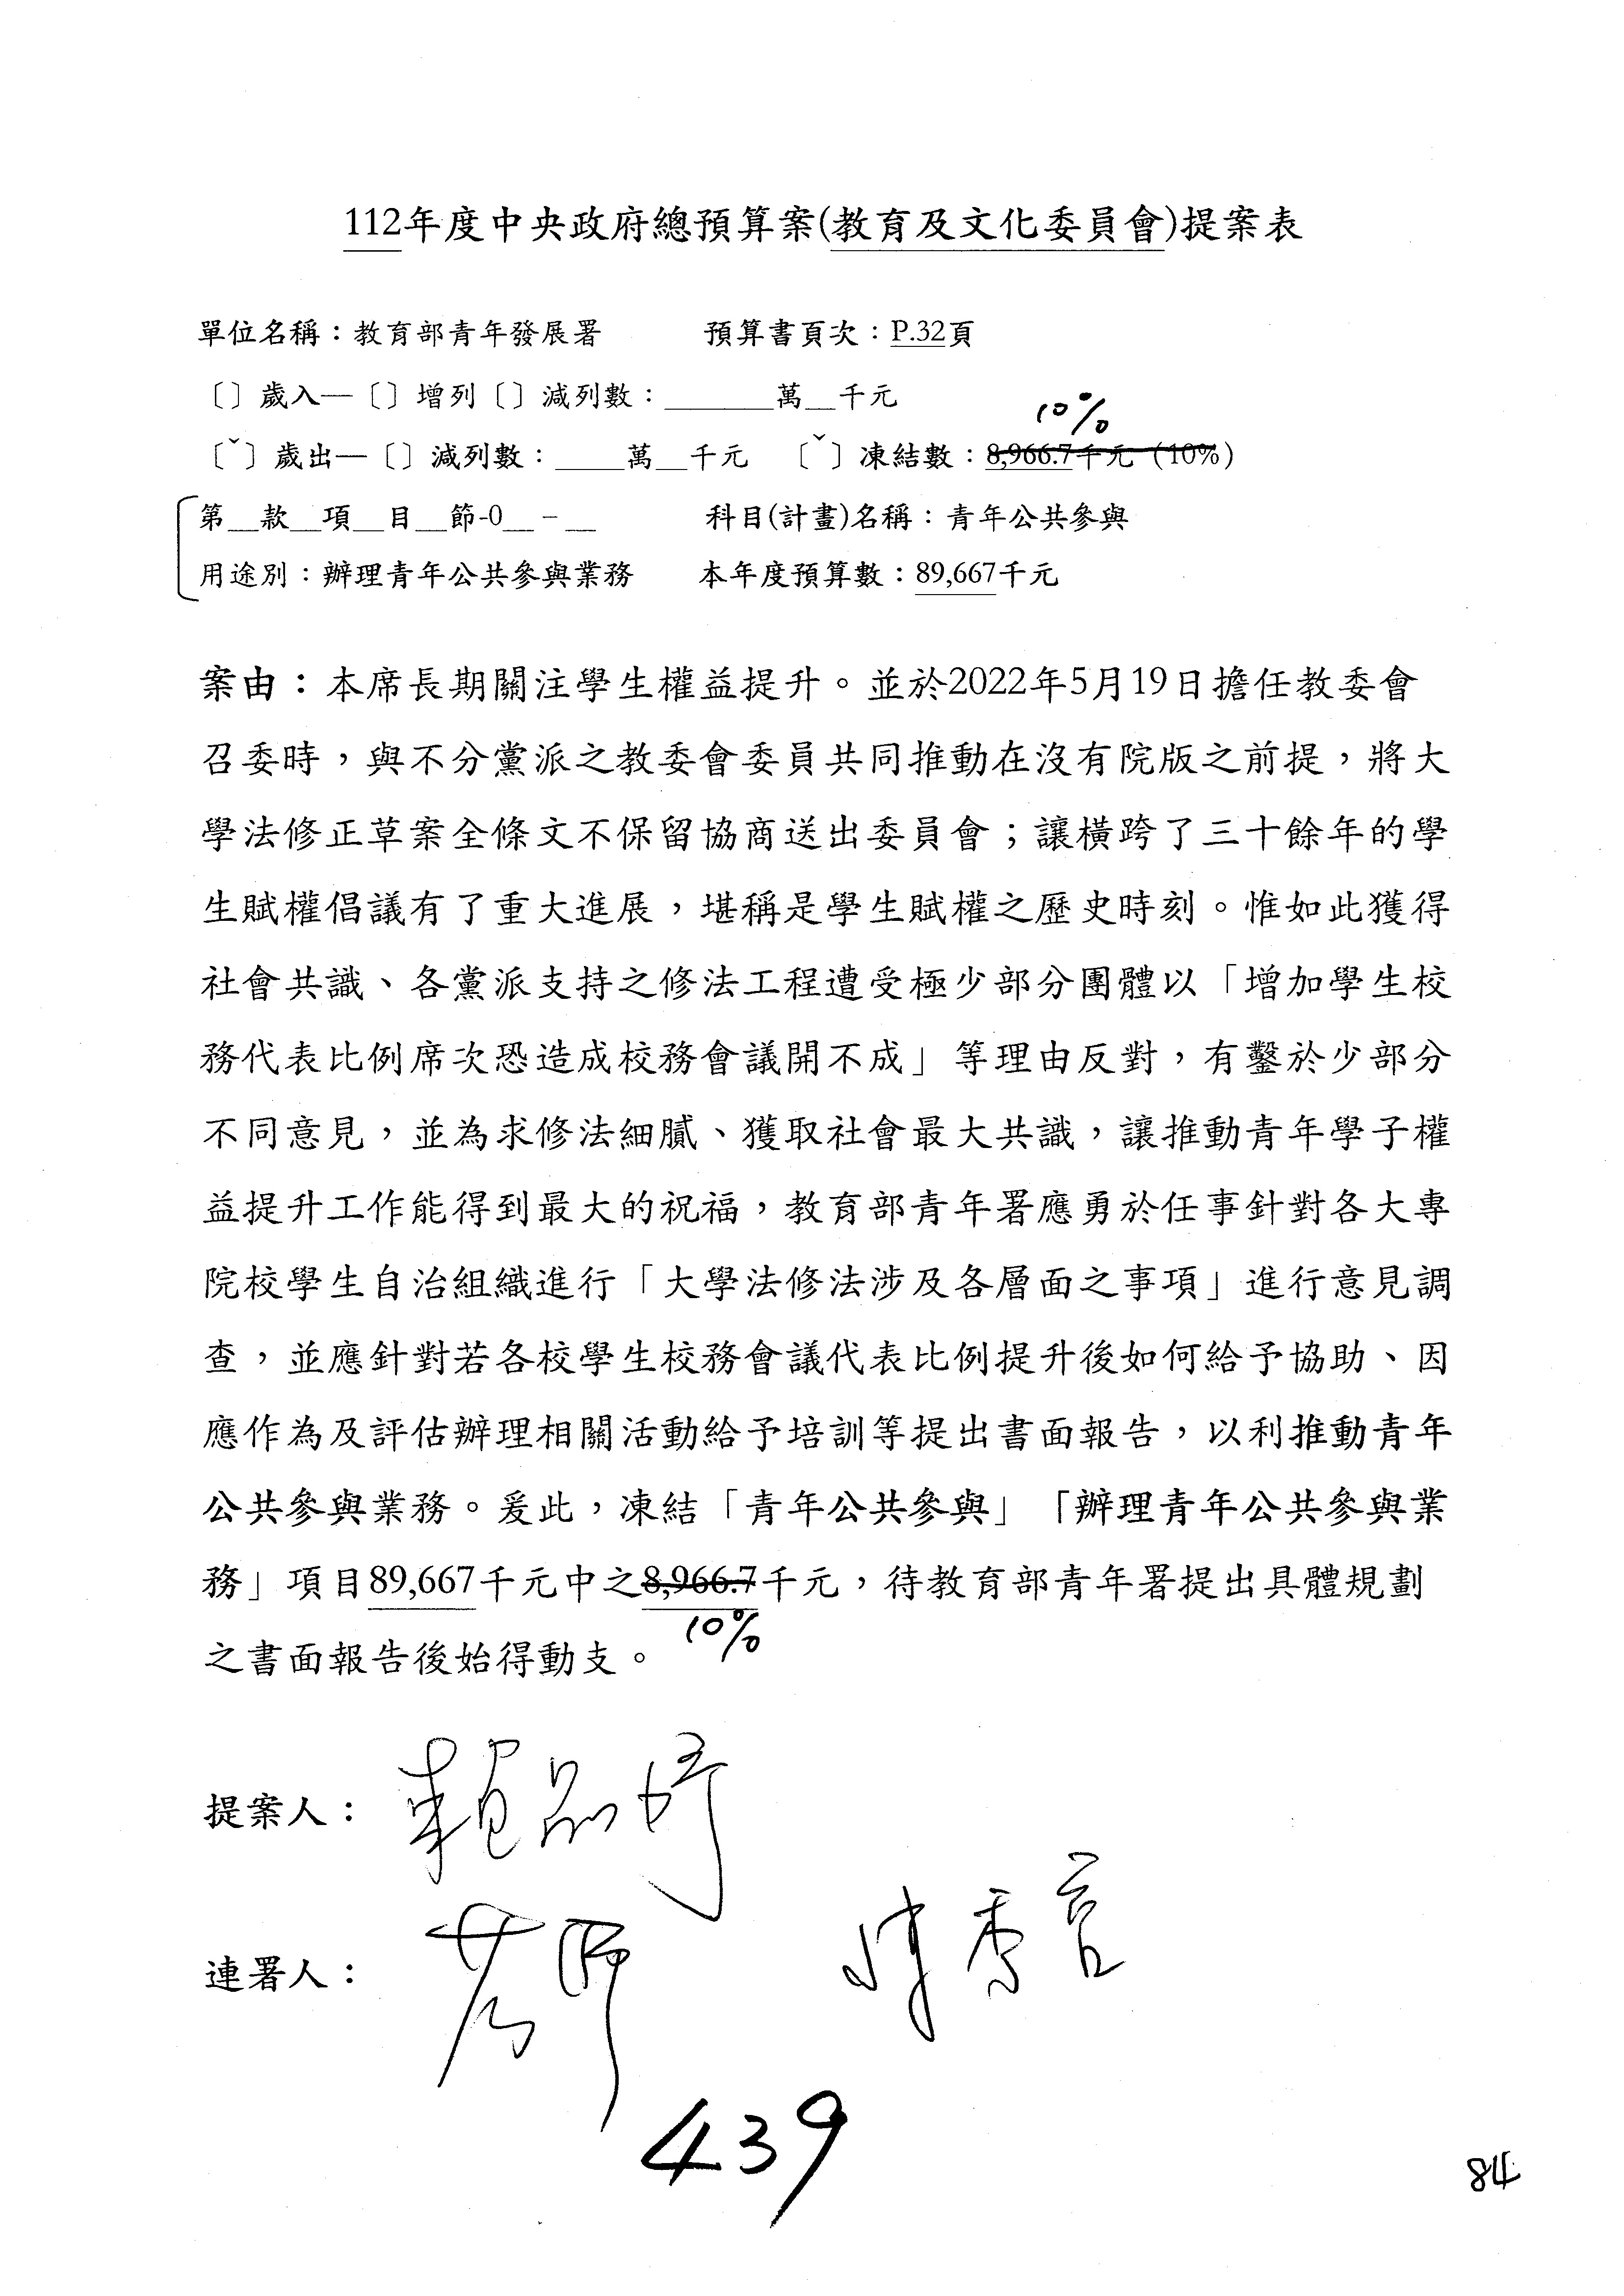 112年度中央政府總預算案(教育及文化委員會)提案表
單位名稱：教育部青年發展署　預算書頁次：P.32頁
〔〕歲入—〔〕增列〔〕減列數：______萬__千元
10%
〔ˇ〕歲出—〔〕減列數：____萬__千元　〔ˇ〕凍結數：8,966.7千元（10%）
第__款__項__目__節-0__-__　科目(計畫)名稱：青年公共參與
用途別：辦理青年公共參與業務　本年度預算數：89,667千元
案由：本席長期關注學生權益提升。並於2022年5月19日擔任教委會
召委時，與不分黨派之教委會委員共同推動在沒有院版之前提，將大
學法修正草案全條文不保留協商送出委員會；讓橫跨了三十餘年的學
生賦權倡議有了重大進展，堪稱是學生賦權之歷史時刻。惟如此獲得
社會共識、各黨派支持之修法工程遭受極少部分團體以「增加學生校
務代表比例席次恐造成校務會議開不成」等理由反對，有鑿於少部分
不同意見，並為求修法細膩、獲取社會最大共識，讓推動青年學子權
益提升工作能得到最大的祝福，教育部青年署應勇於任事針對各大專
院校學生自治組織進行「大學法修法涉及各層面之事項」進行意見調
查，並應針對若各校學生校務會議代表比例提升後如何給予協助、因
應作為及評估辦理相關活動給予培訓等提出書面報告，以利推動青年
公共參與業務。爰此，凍結「青年公共參與」「辦理青年公共參與業
務」項目89,667千元中之8,966.7千元，待教育部青年署提出具體規劃
10%
之書面報告後始得動支。
提案人：賴品妤
連署人：　陳秀寳
439
84